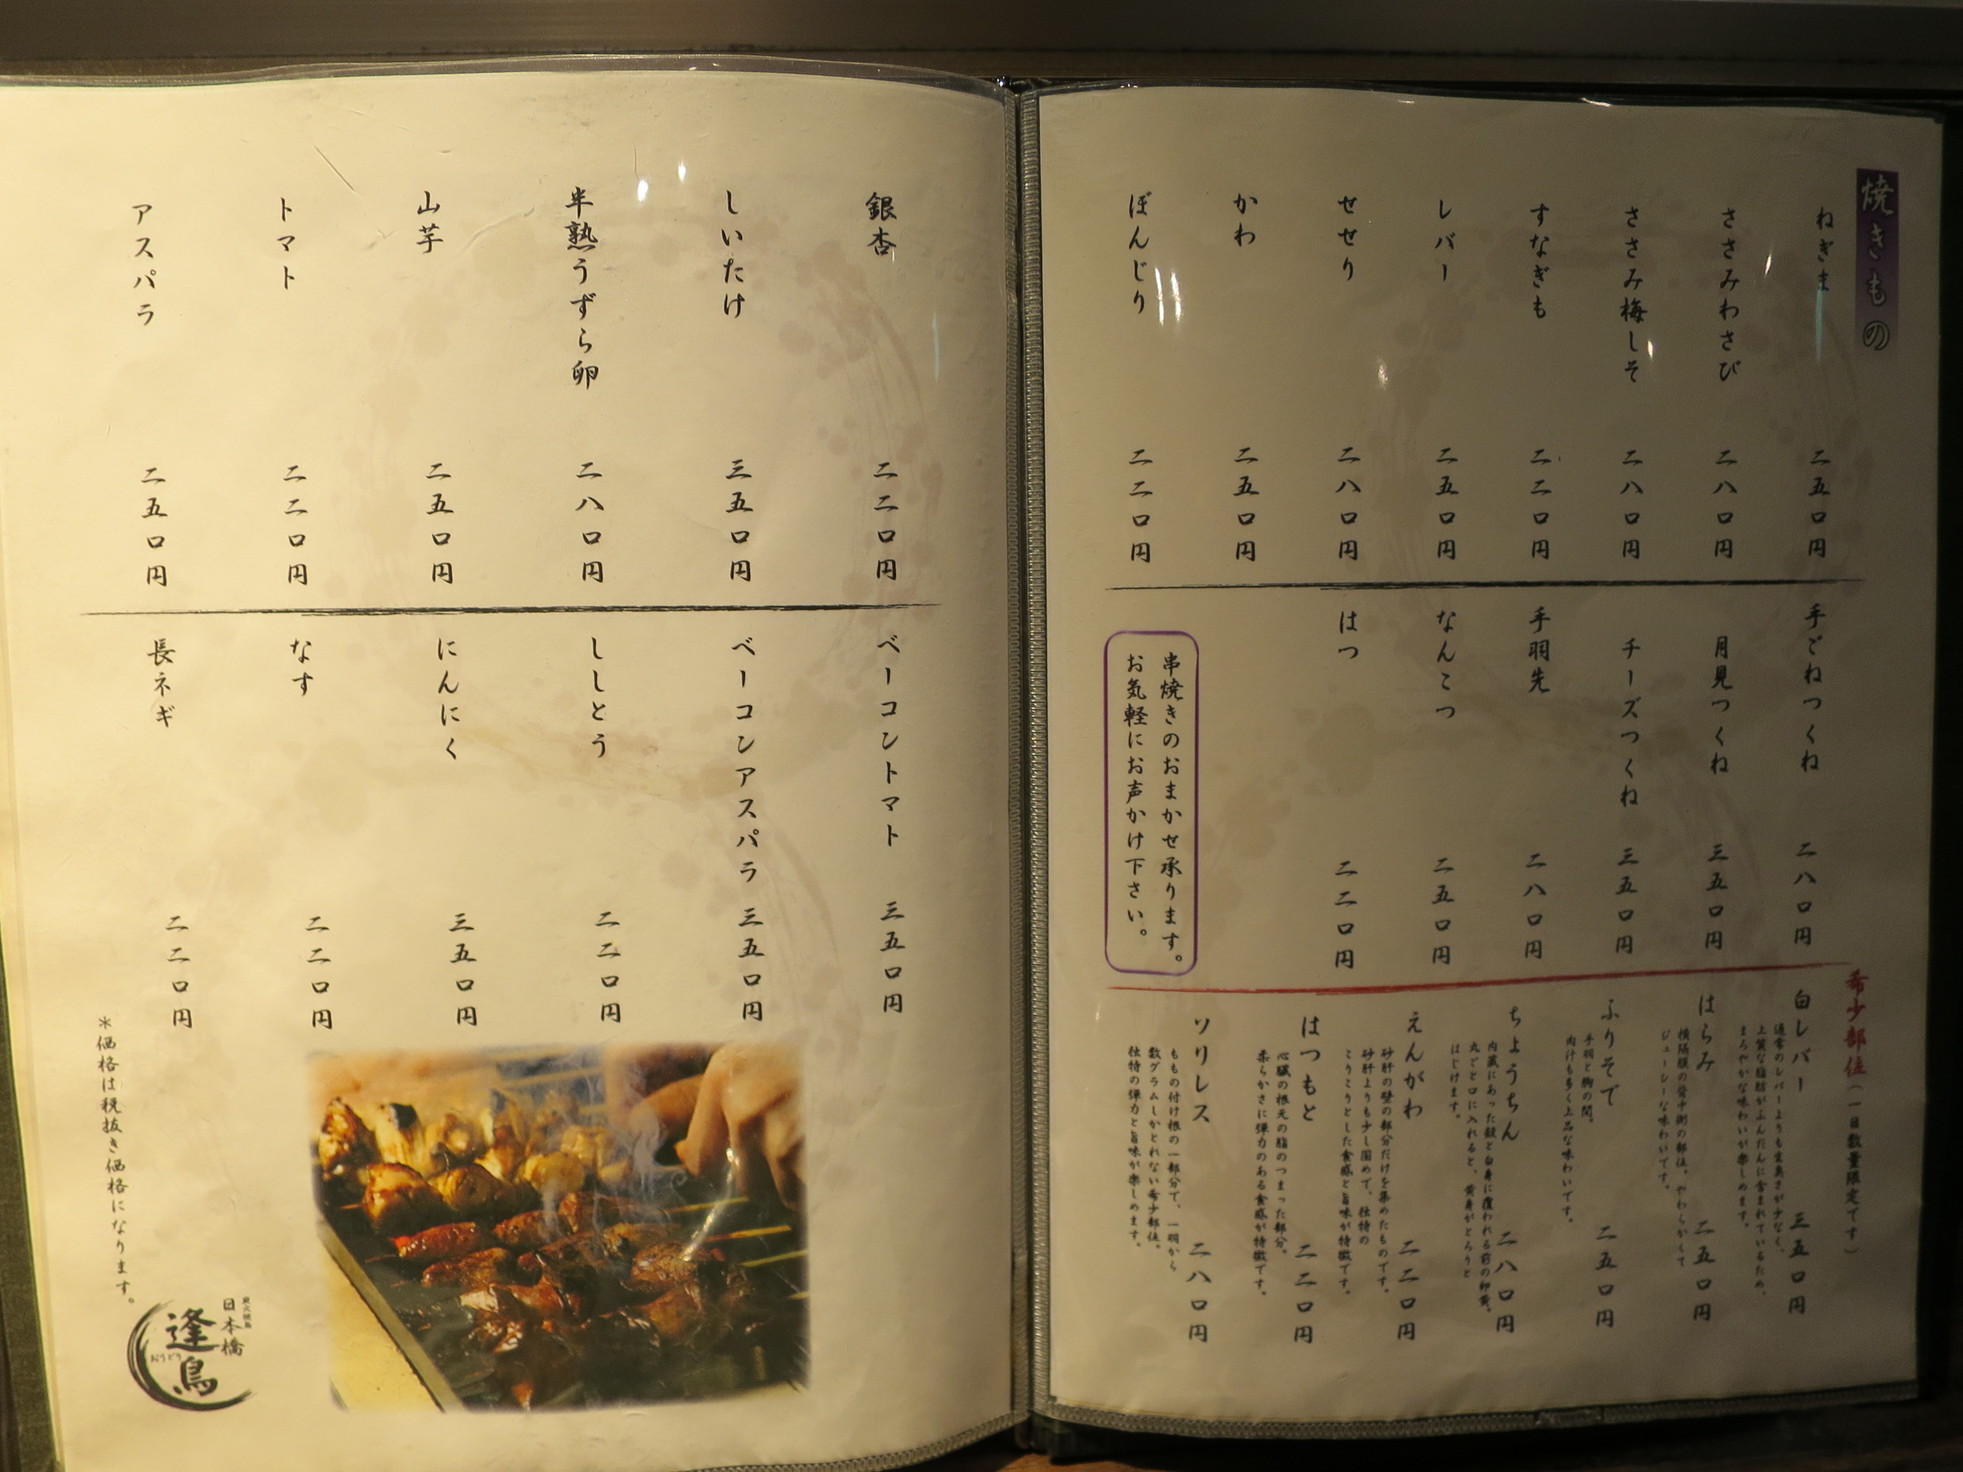 焼きもの
ねぎま 二五〇円
ささみわさび 二八〇円
ささみ梅しそ 二八〇円
すなぎも 二二〇円
レバー 二五〇円
せせり 二八〇円
かわ 二五〇円
ぼんじり 二二〇円
手ごねつくね 二八〇円
月見つくね 三五〇円
チーズつくね 三五〇円
手羽先 二八〇円
なんこつ 二五〇円
はつ 二二〇円
串焼きのおまかせ承ります。
お気軽にお声かけ下さい。
希少部位(一日数量限定です)
白レバー 三五〇円
通常のレバーよりも臭みが少なく、
上質な脂肪がふんだんに含まれているため、
まろやかな味わいが楽しめます。
はらみ 二五〇円
横隔膜の背中側の部位。やわらかくて
ジューシーな味わいです。
ふりそで 二五〇円
手羽と胸の間。
肉汁も多く上品な味わいです。
ちょうちん 二八〇円
内蔵にあった殻と白身に覆われる前の卵黄。
丸ごと口に入れると、黄身がとろりと
はじけます。
えんがわ 二二〇円
砂肝の壁の部分だけを集めたものです。
砂肝よりも少し固めで、独特の
こりこりとした食感と旨味が特徴です。
はつもと 二二〇円
心臓の根元の脂のつまった部分。
柔らかさに弾力のある食感が特徴です。
ソリレス 二八〇円
ももの付け根の一部分で、一羽から
数グラムしかとれない希少部位。
独特の弾力と旨味が楽しめます。
銀杏 二二〇円
しいたけ 三五〇円
半熟うずら卵 二八〇円
山芋 二五〇円
トマト 二二〇円
アスパラ 二五〇円
ベーコントマト 三五〇円
ベーコンアスパラ 三五〇円
ししとう 二二〇円
にんにく 三五〇円
なす 二二〇円
長ネギ 二二〇円
＊価格は税抜き価格になります。
炭火焼鳥
日本橋
逢鳥
おうどり